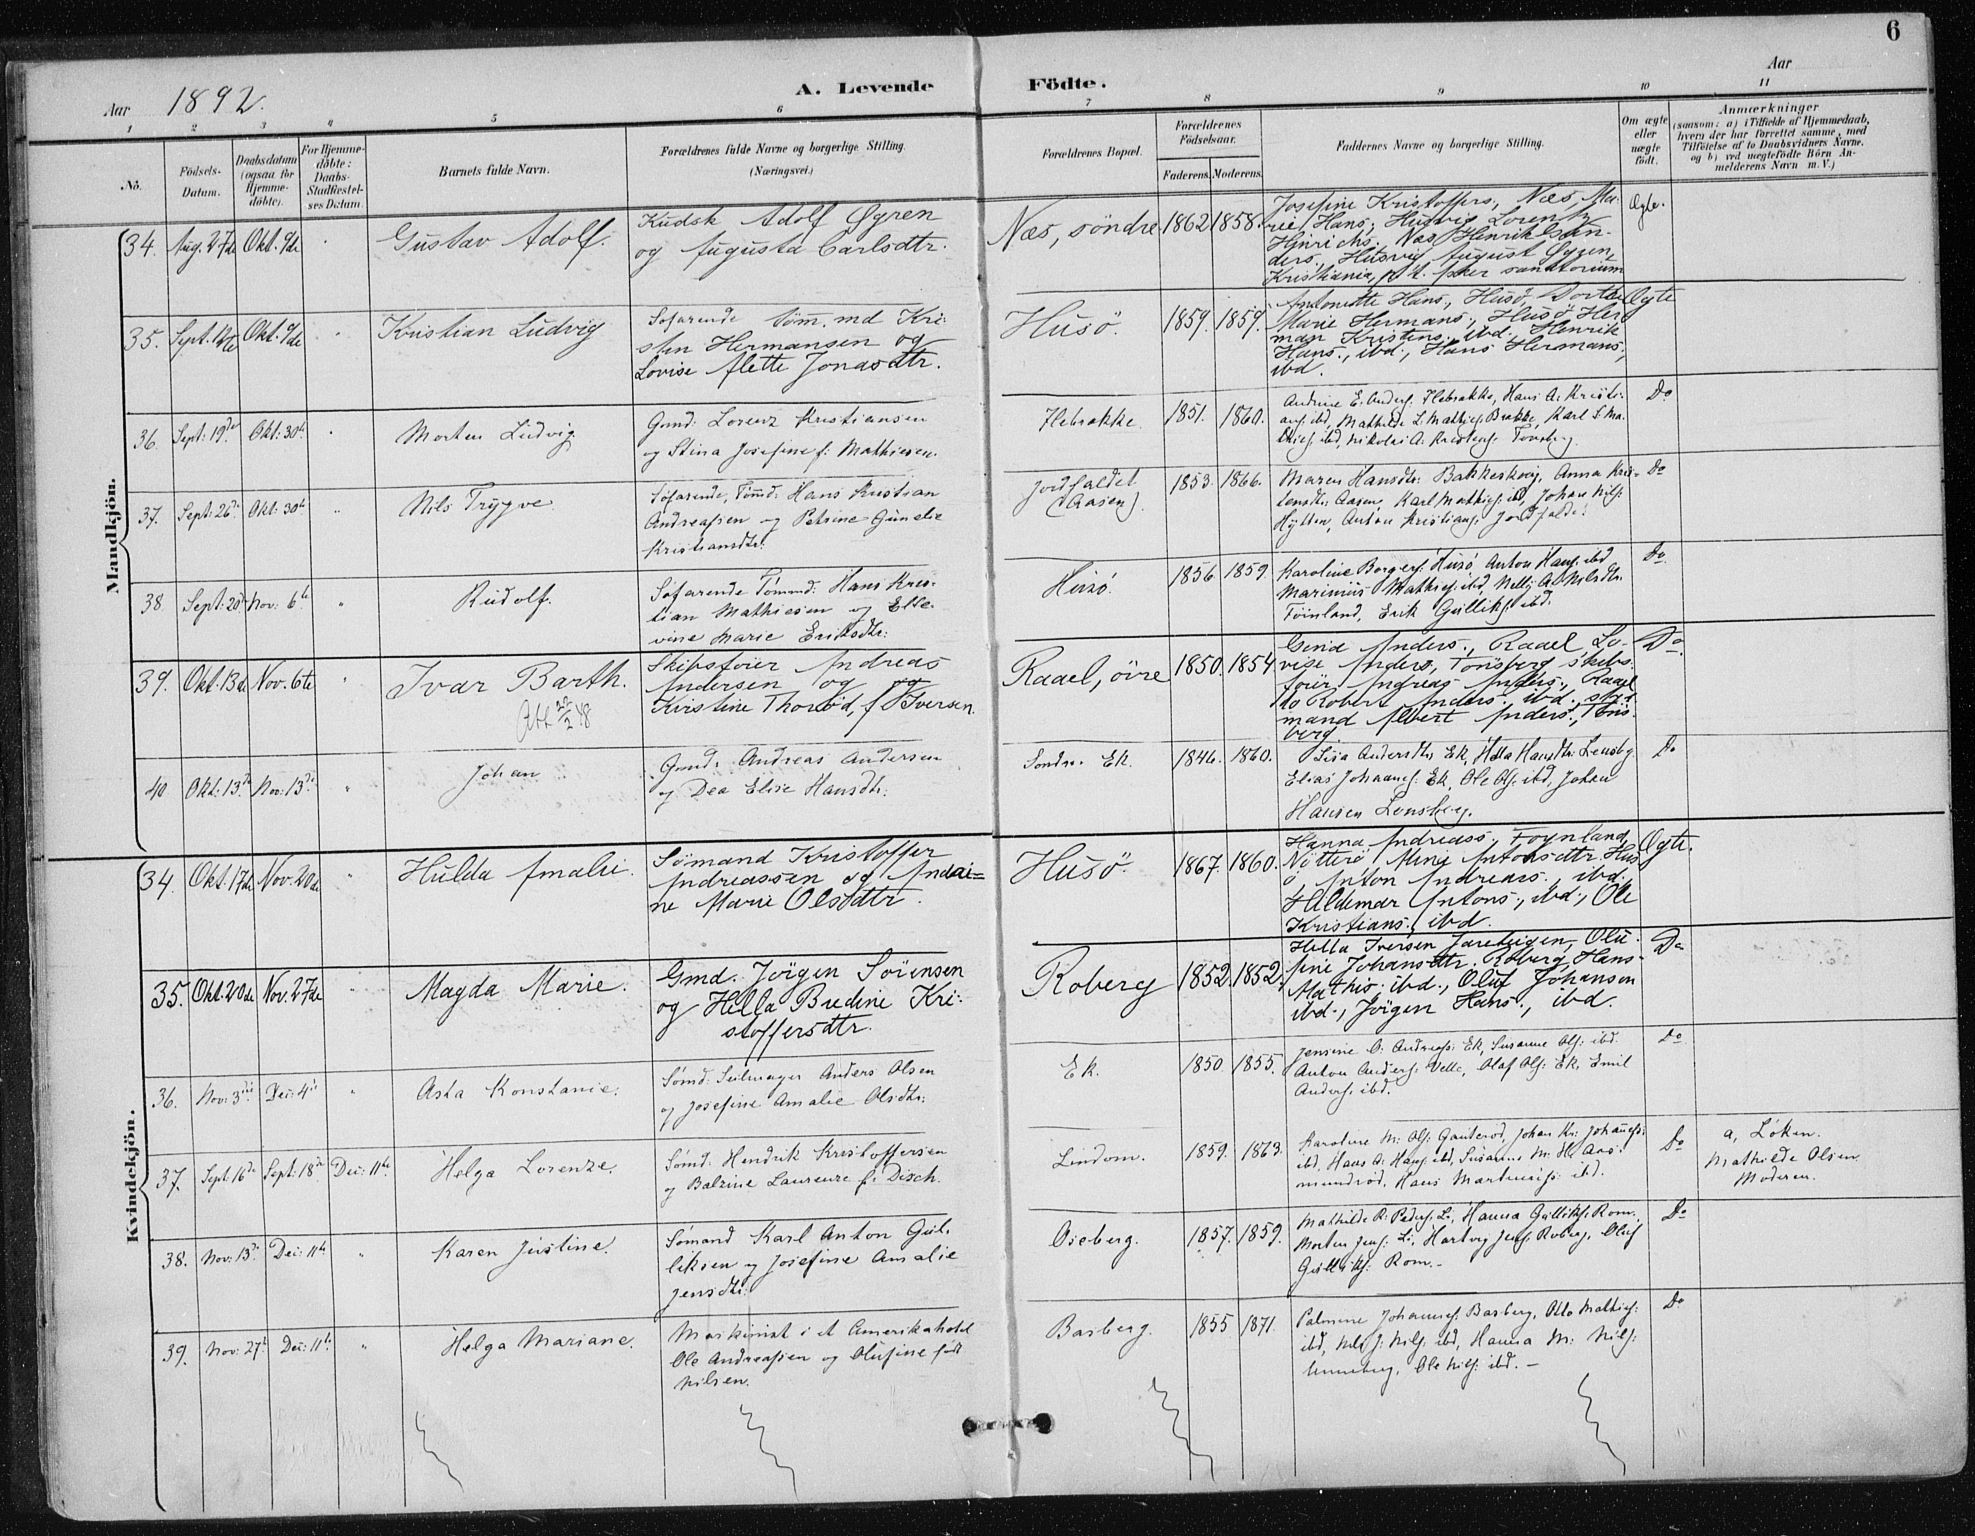 6
Aar 1892.
A. Levende Födte.
Aar
1 2 3 4 5 6 7 8 9 10 11
No.
Födsels-Datum.
Daabsdatum (ogsaa for Hjemme-döbte).
For Hjemme-döbte: Daabs-Stadfæstel-ses Datum.
Barnets fulde Navn.
Forældrenes fulde Navne og borgerlige Stilling. (Næringsvei.)
Forældrenes Bopæl.
Forældrenes Födselsaar.
Faderens. Moderens.
Faddernes Navne og borgerlige Stilling.
Om ægte eller uægte födt.
Anmærkninger
(saasom: a) i Tilfælde af Hjemmedaab, hvem der har forrettet samme, med Tilföielse af to Daabsvidners Navne, og b) ved uægtefödte Börn An-melderens Navn m. V.)
Mandkjön.
34. Aug. 27de Okt. 9de Gustav Adolf.
Kudsk Adolf Øgren
og Augusta Carlsdtr.
Næs, søndre 1862 1858.
Josefine Kristoffers, Næs, Ma-
rie Hans, Husvig Lorentz
Hinrichs. Næs Henrik
ders, Husvig August Øgren,
Kristiania, sanatorium
Ægte.
35. Sept. Okt. 9de " Kristian Ludvig
Søfarende tøm. md Kri-
sten Hermansen og
Lovise Alette Jonasdtr.
Husö. 1859. 1859.
Antonette Hans., Husö, Dorthe
Marie Hermans., Husö Her
man Kristens, ibd. Henrik
Hans., ibd., Hans Hermans.,
ibd.
Ægte
36. Sept: 19de Okt: 30te Morten Ludvig
Gmd: Lorenz Kristiansen
og Stina Josefine f: Mathiesen.
Flebrække. 1851. 1860.
Andrine E. Anders: Flebrække, Hans A. Kristi-
ans: ibd, Mathilde L. Mathies: Brække, Karl S. Ma-
thies: ibd, Nikolai A. Tønsberg.
Do
37. Sept: 26de Okt: 30te " Nils Trygve
Søfarende, Tømd: Hans Kristian
Andreassen og Petrine Gunelie
Kristiansdtr:
Jordfaldet
(Aasen). 1853. 1866.
Maren Hansdtr: Bakkeskoug, Anna Kris-
tensdtr: Aasen, Karl Mathies: ibd, Johan Nils:
Hytten, Anton Kristians: Jordfaldet
Do
38. Sept: 20de Nov: 6te " Rudolf.
Søfarende Tømmd: Hans Kris-
tian Mathiesen og Elle-
vine Marie Eriksdtr:
Husö. 1856. 1859.
Karoline Borgers: Husø Anton Hans: ibd
Marinius Mathies: ibd, Nelly A. Nilsdtr.
Føinland, Erik Gulliks: ibd.
Do
39. Okt. 13de Nov. 6te " Ivar Barth.
Att 20/2 48
Skibsfører Andreas
Andersen og
Kristine f. Iversen.
Raael, øvre 1850. 1854
Gina Anders., Raael Lo-
vise Anders, Tønsberg skibs-
fører Andreas Anders., Raael
Robert Anders. ibd.,
mand Albert Anders., Tøns-
berg.
Do
40 Okt: 13de Nov: 13de " Johan
Gmd: Andreas Andersen
og Dea Elise Hansdtr:
Søndre Ek. 1846. 1860.
Lisa Andersdtr: Ek, Hella Hansdtr: Lensberg
Elias Johannes: Ek, Ole Ols: ibd, Johan
Hansen Lensberg.
Do
Kvindekjön.
34. Okt. 17de Nov. 20de " Hulda Amalie.
Sømand Kristoffer
Andreassen og Andri-
ne Marie Olsdtr.
Husö. 1867. 1860.
Hanna Andreass., Føynland
Nøtterø, Mina Antonsdtr. Hus-
ö, Anton Andreass., ibd.
Haldemar Antons., ibd., Ole
Kristians. ibd.
Ægte.
35. Okt. 20de Nov. 27de " Magda Marie.
Gmd. Jörgen Sörensen
og Hella Bredine Kri-
stoffersdtr.
Roberg 1852. 1852.
Hella Iversen Jareteigen, Olu-
fine Johansdtr. Roberg, Hans
Mathis. ibd., Oluf Johansen
ibd., Jörgen Hans., ibd.
Do
36. Nov: 3die Dec: 4de " Asta Konstanse.
Sømd: Seilmager Anders Olsen
og Josefine Amalie Olsdtr:
Ek. 1850. 1855.
Jensine O. Andreas: Ek, Susanne Ols: ibd.
Anton Anders: Velle, Olaf Ols: Ek, Emil
Anders: ibd.
Do
37. Sept: 16de Sept: 18de Dec: 11te. Helga Lorenze.
Sømd: Hendrik Kristoffersen
og Balzine Laurenze f: Disch.
Lindom. 1859. 1863.
Karoline M: Ols: Gauterød, Johan Kr: Johannes:
ibd, Hans A: Hans: ibd, Susanne M: H: Aas-
mundrød, Hans Martinius: ibd.
Do
a, Løken.
Mathilde Olsen
Moderen.
38. Nov: 13de Dec: 11te " Karen Justine.
Sømand Karl Anton Gul-
liksen og Josefine Amalie
Jensdtr:
Oseberg. 1857. 1859.
Mathilde R: Peders: Li, Hanna Gulliks: Rom.
Morten Jens: Li, Hartvig Jens: Roberg, Oluf
Gulliks: Rom.-
Do
39. Nov: 27de Dec: 11te. " Helga Mariane.
Maskinist i et Amerikahotel
Ole Andreassen og Olufine født
Nilsen.
Basberg. 1855 1871.
Palmine Johannes: Basberg, Otto Mathies:
ibd, Nils J: Nils: ibd, Hanna M: Nils:
Unneberg, Ole Nils: ibd. —
Do